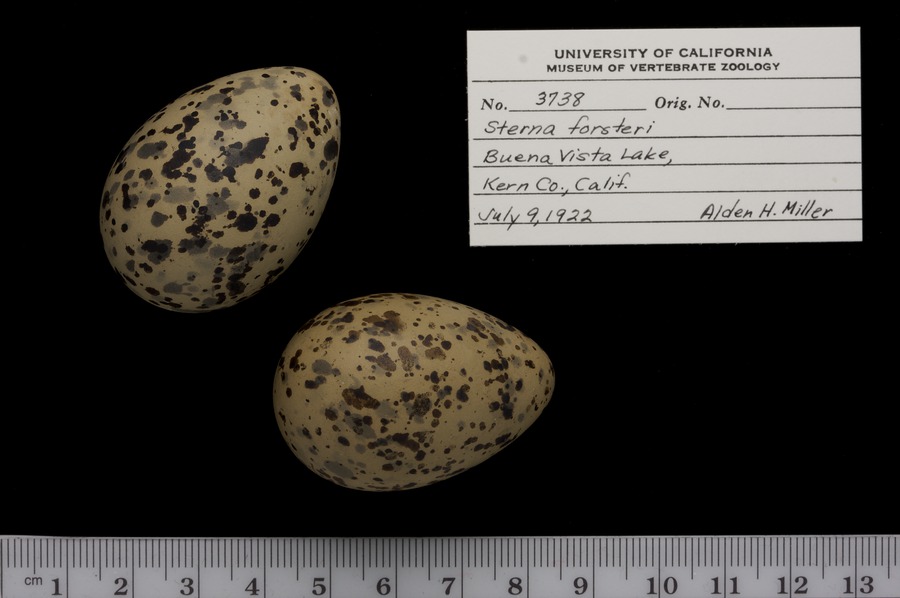 UNIVERSITY OF CALIFORNIA
MUSEUM OF VERTEBRATE ZOOLOGY
No. 3738 Orig. No.
Sterna forsteri
Buena Vista Lake,
Kern Co., Calif.
July 9, 1922 Alden H. Miller
cm 1 2 3 4 5 6 7 8 9 10 11 12 13